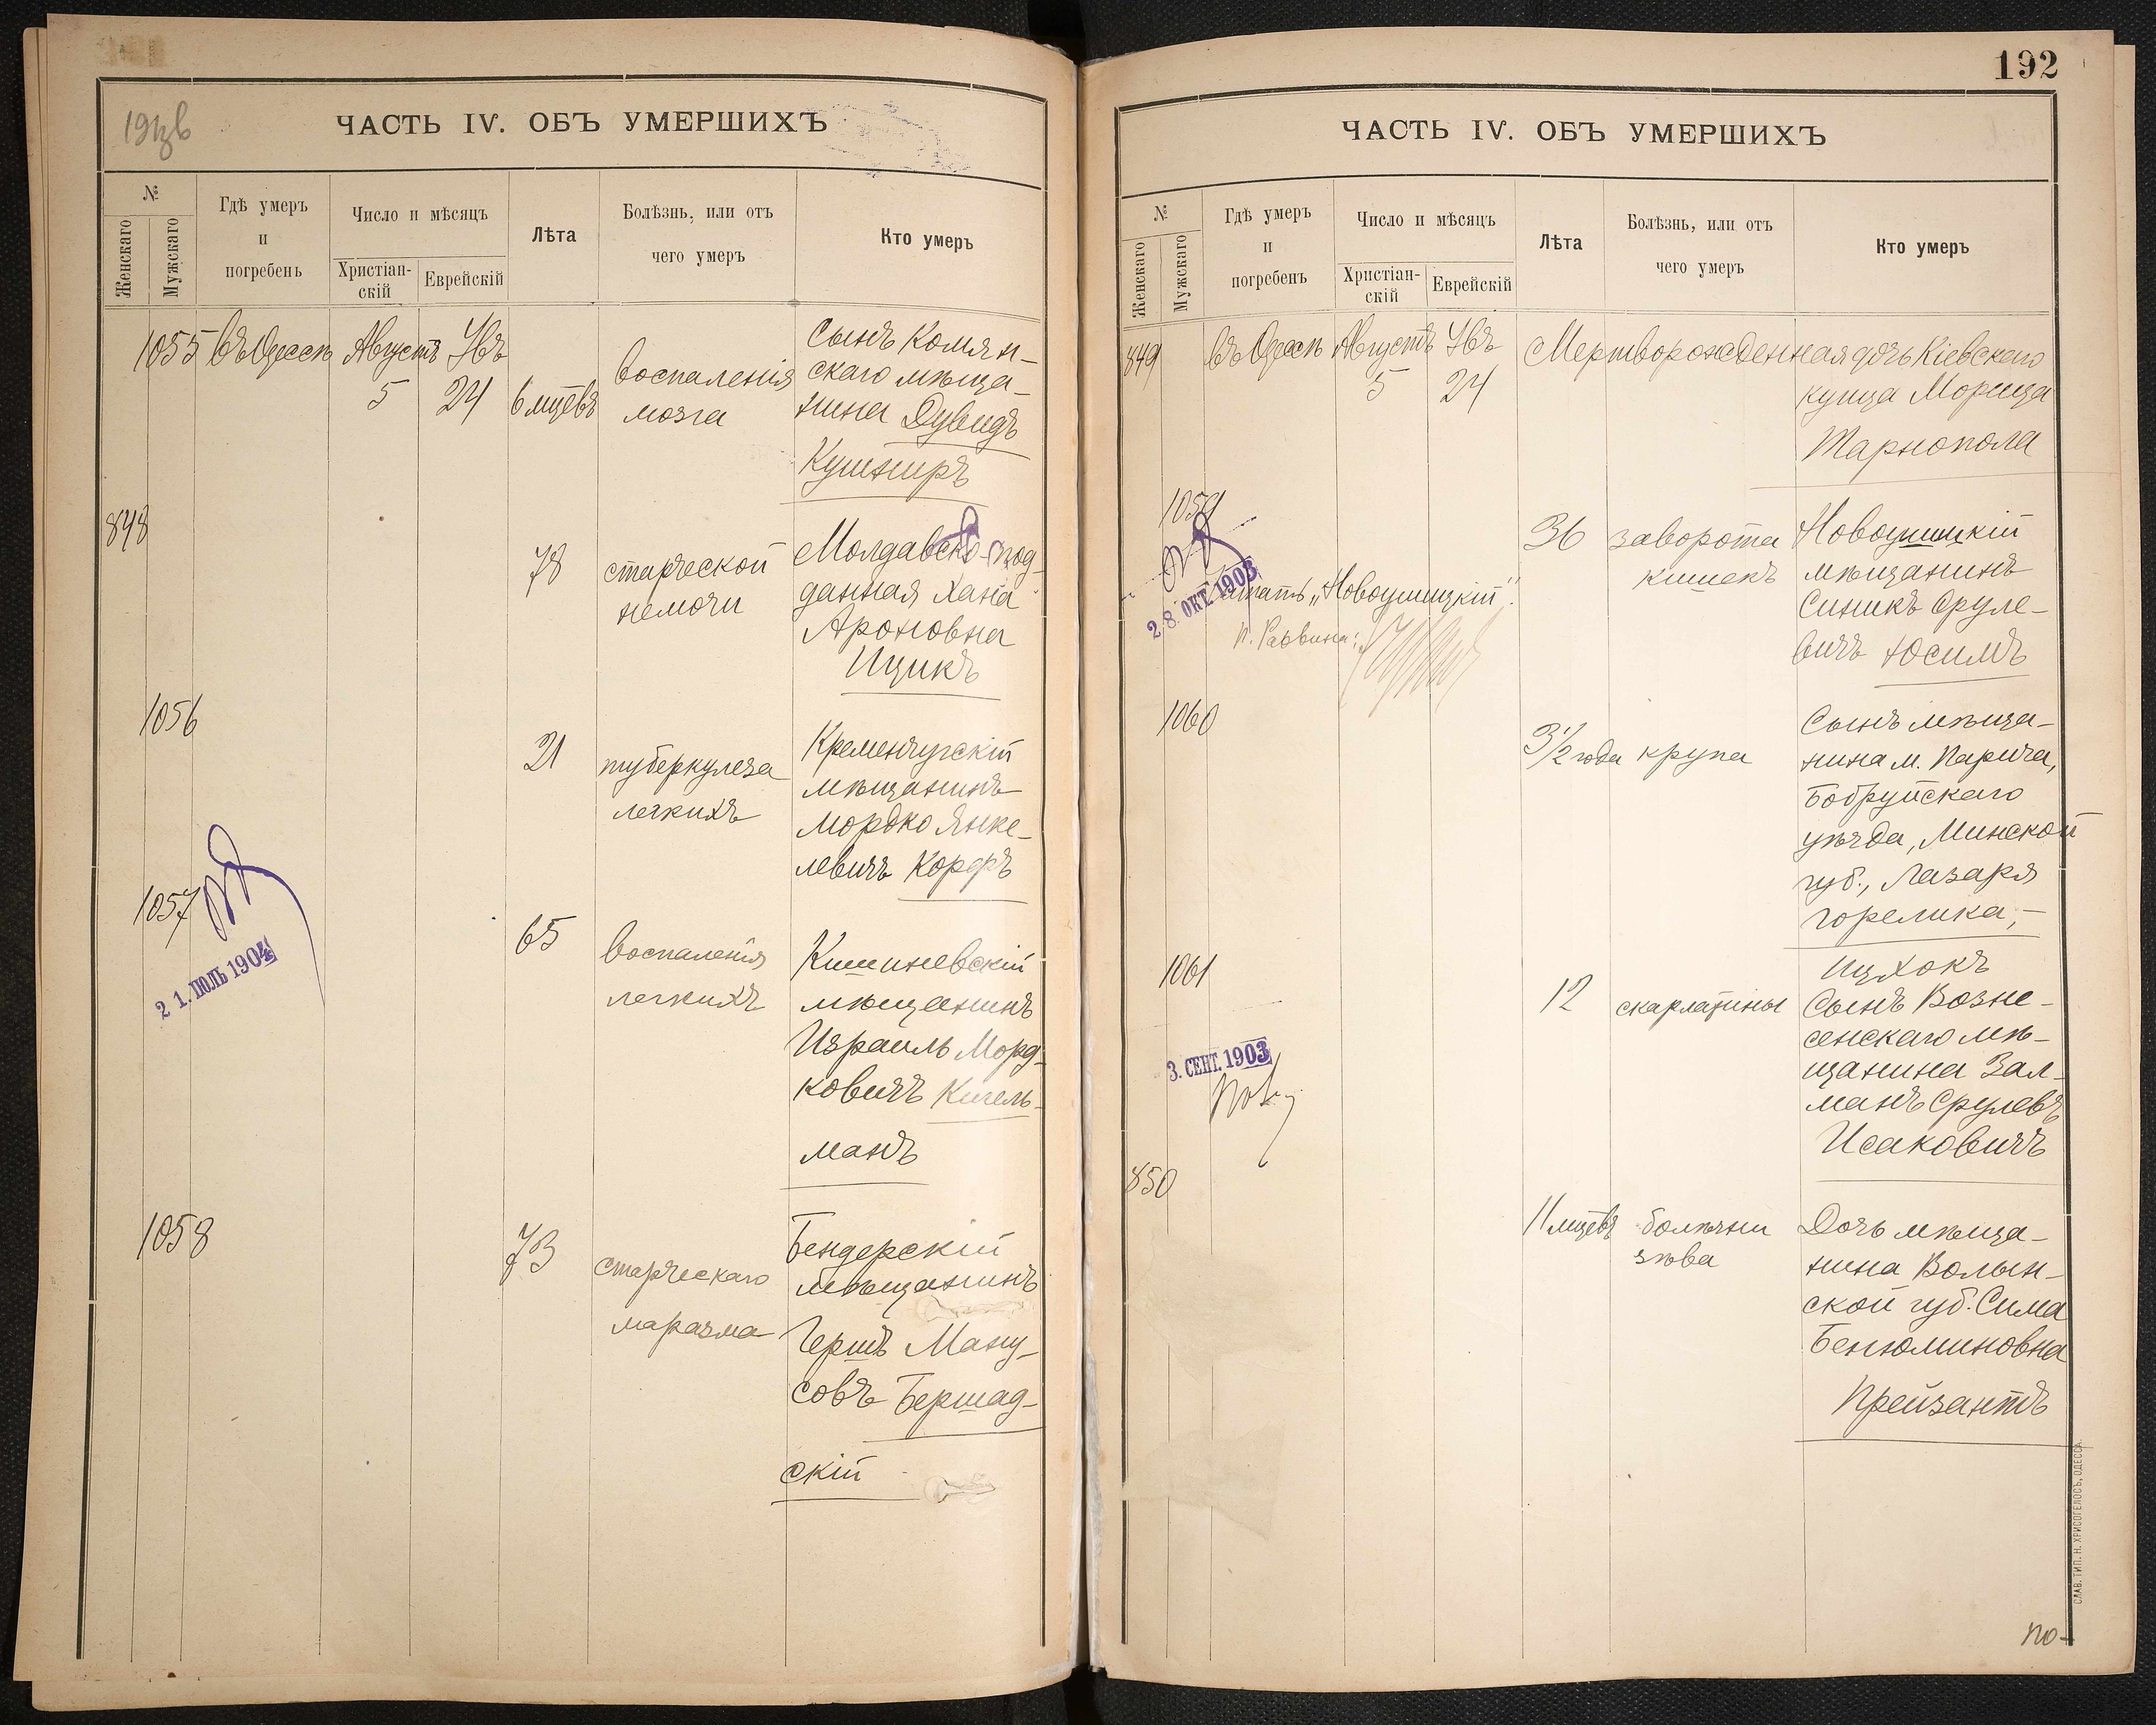 ЧАСТЬ IV. ОБЪ УМЕРШИХЪ
№
Женскаго
Мужскаго
Гдѣ умеръ
и
погребенъ
Число и мѣсяцъ
Христіан-
скій
Еврейскій
Лѣта
Болѣзнь, или отъ
чего умеръ
Кто умеръ
1055 въ Одессѣ Августъ Увъ
5 24 6 мцевъ
воспаленія
мозга
Сынъ Комян-
скаго мѣща-
нина Дувидъ
Кушниръ
848
78 старческой
немочи
Молдавско-под-
данная Хана
Ароновна
Ицикъ
1056
21 туберкулеза
легкихъ
Кременчугскій
мѣщанинъ
Мордко Янке-
левичъ Корфъ
1057
21. ІЮЛЬ 1904
65 воспаленія
легкихъ
Кишиневскій
мѣщанинъ
Израиль Морд-
ковичъ Кигель-
манъ
1058
73 старческаго
маразма
Бендерскій
мѣщанинъ
Гершъ Ману-
совъ Бершад-
скій
192
ЧАСТЬ IV. ОБЪ УМЕРШИХЪ
№
Женскаго
Мужскаго
Гдѣ умеръ
и
погребенъ
Число и мѣсяцъ
Христіан-
скій
Еврейскій
Лѣта
Болѣзнь, или отъ
чего умеръ
Кто умеръ
849 въ Одессѣ Августъ Увъ
5 24
Мертворожденная дочь Кіевскаго
купца Морица
Тарнопола
1059
28. ОКТ. 1903
"Новоушицкій".
п. Раввина:
36 заворота
кишекъ
Новоушицкій
мѣщанинъ
Синикъ Сруле-
вичъ Юсимъ
1060
3½ года крупа
Сынъ мѣща-
нина м. Парича,
Бобруйскаго
уѣзда, Минской
губ., Лазаря
Горелика,-
Ицхокъ
1061
3. СЕНТ. 1903
12 скарлатины
Сынъ Возне-
сенскаго мѣ-
щанина Зал-
манъ Срулевъ
Исаковичъ
850
11 мцевъ болѣзни
зѣва
Дочь мѣща-
нина Волын-
ской губ. Сима
Бенюминовна
Прейзантъ
СЛАВ. ТИП. Н. ХРИСОГЕЛОСЪ, ОДЕССА.
по-